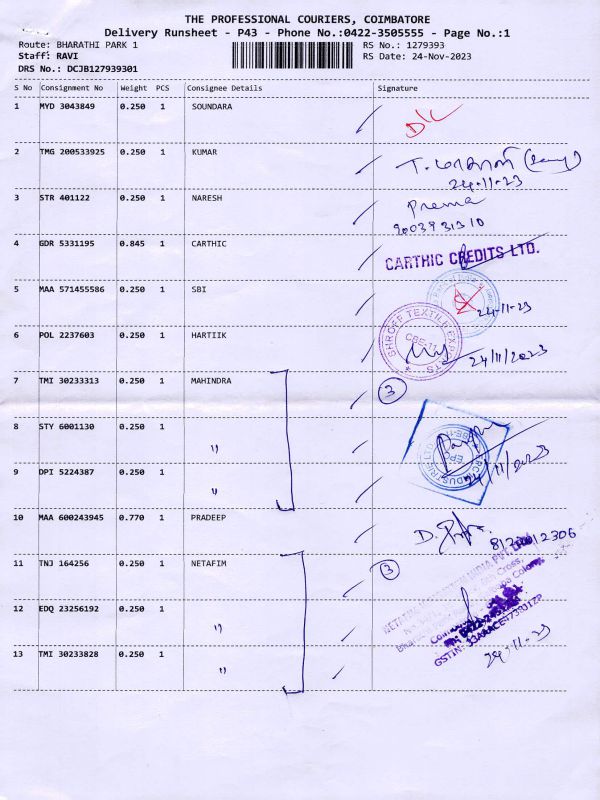 THE PROFESSIONAL COURIERS, COIMBATORE
Delivery Runsheet - P43 - Phone No.:0422-3505555 - Page No.:1
Route: BHARATHI PARK 1 RS No.: 1279393
Staff: RAVI RS Date: 24-Nov-2023
DRS No.: DCJB127939301
S No Consignment No Weight PCS Consignee Details Signature
1 MYD 3043849 0.250 1 SOUNDARA D/L
2 TMG 200533925 0.250 1 KUMAR
24-11-23
3 STR 401122 0.250 1 NARESH Prema
4 GDR 5331195 0.845 1 CARTHIC CARTHIC CREDITS LTD.
5 MAA 571455586 0.250 1 SBI 24-11-23
6 POL 2237603 0.250 1 HARTIIK SHROFF TEXTILE EXPORTS CBE-11
24/11/2023
7 TMI 30233313 0.250 1 MAHINDRA 3
8 STY 6001130 0.250 1 "
9 DPI 5224387 0.250 1 " 24/11/2023
10 MAA 600243945 0.770 1 PRADEEP
11 TNJ 164256 0.250 1 NETAFIM 3
12 EDQ 23256192 0.250 1 "
13 TMI 30233828 0.250 1 " 24-11-23